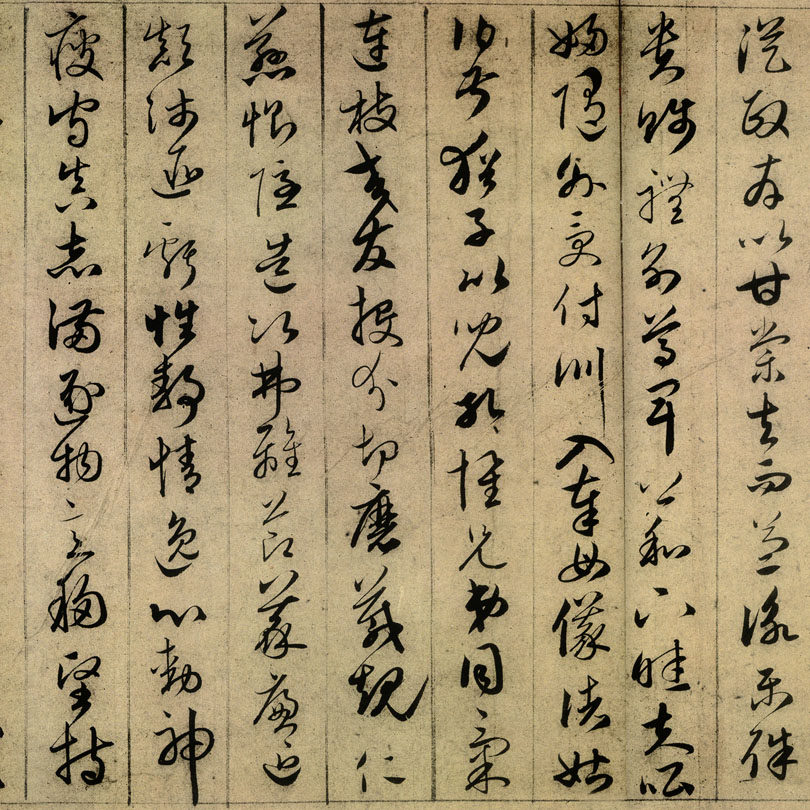 從政存以甘棠去而益詠樂殊
貴賤禮別尊卑上和下睦夫唱
婦隨外受付訓入奉母儀諸姑
伯叔猶子比兒孔懷兄弟同氣
連枝交友投分切磨箴規仁
慈惻隱造次弗離節義廉退
顛沛匪虧性靜情逸心動神
疲守真志滿逐物意移堅持